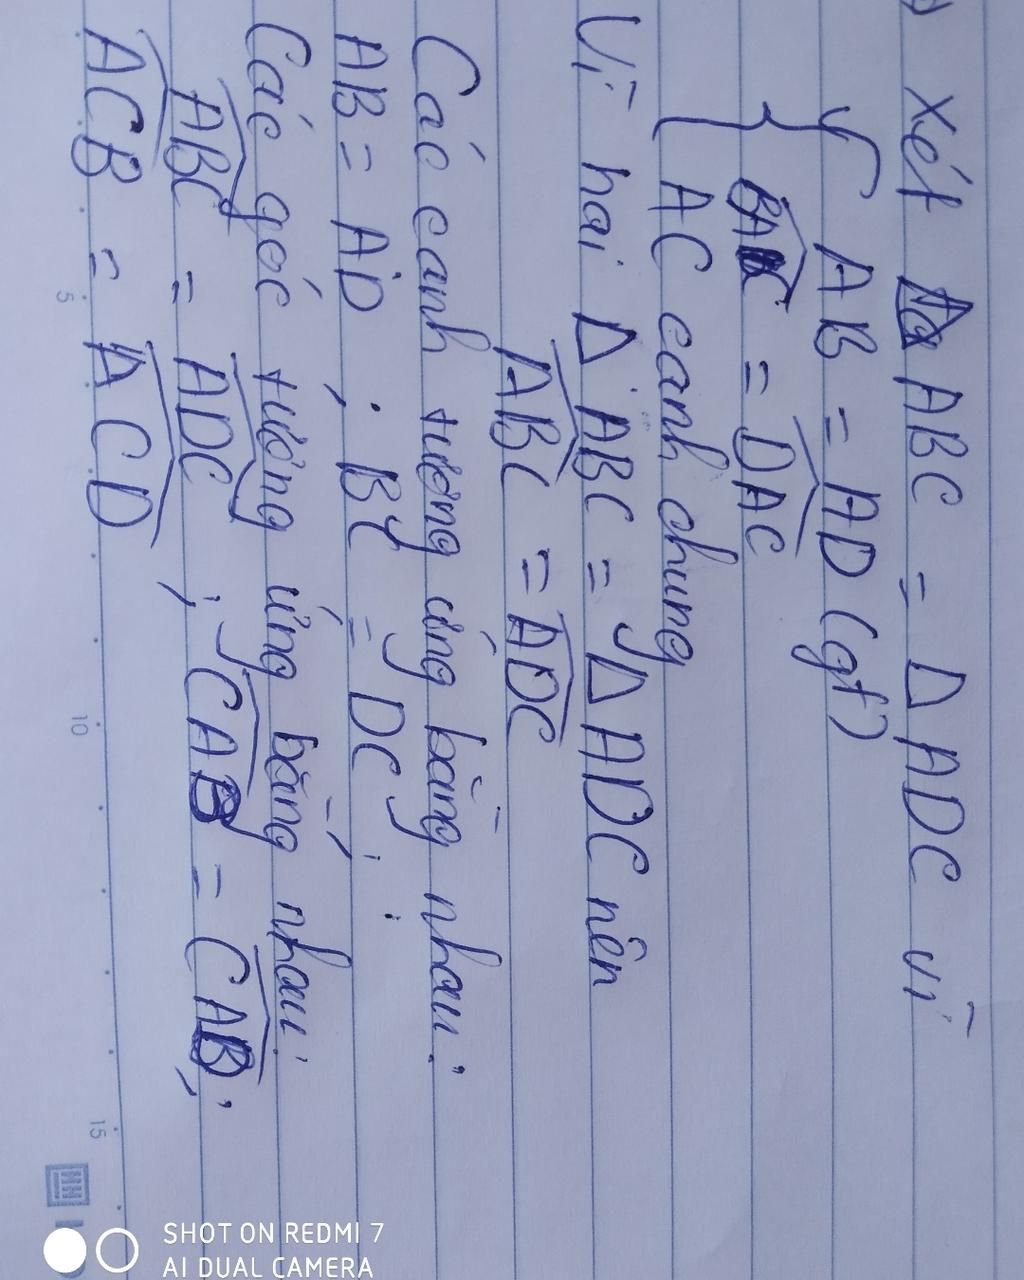 ) Xét Δ ABC = Δ ADC vì
AB = AD (gt)
BAC = DAC
AC cạnh chung
Vì hai Δ ABC = Δ ADC nên
ABC = ADC
Các cạnh tương ứng bằng nhau:
AB = AD ; BC = DC ;
Các góc tương ứng bằng nhau:
ABC = ADC ; CAB = CAB ;
ACB = ACD
5
10
15
SHOT ON REDMI 7
AI DUAL CAMERA